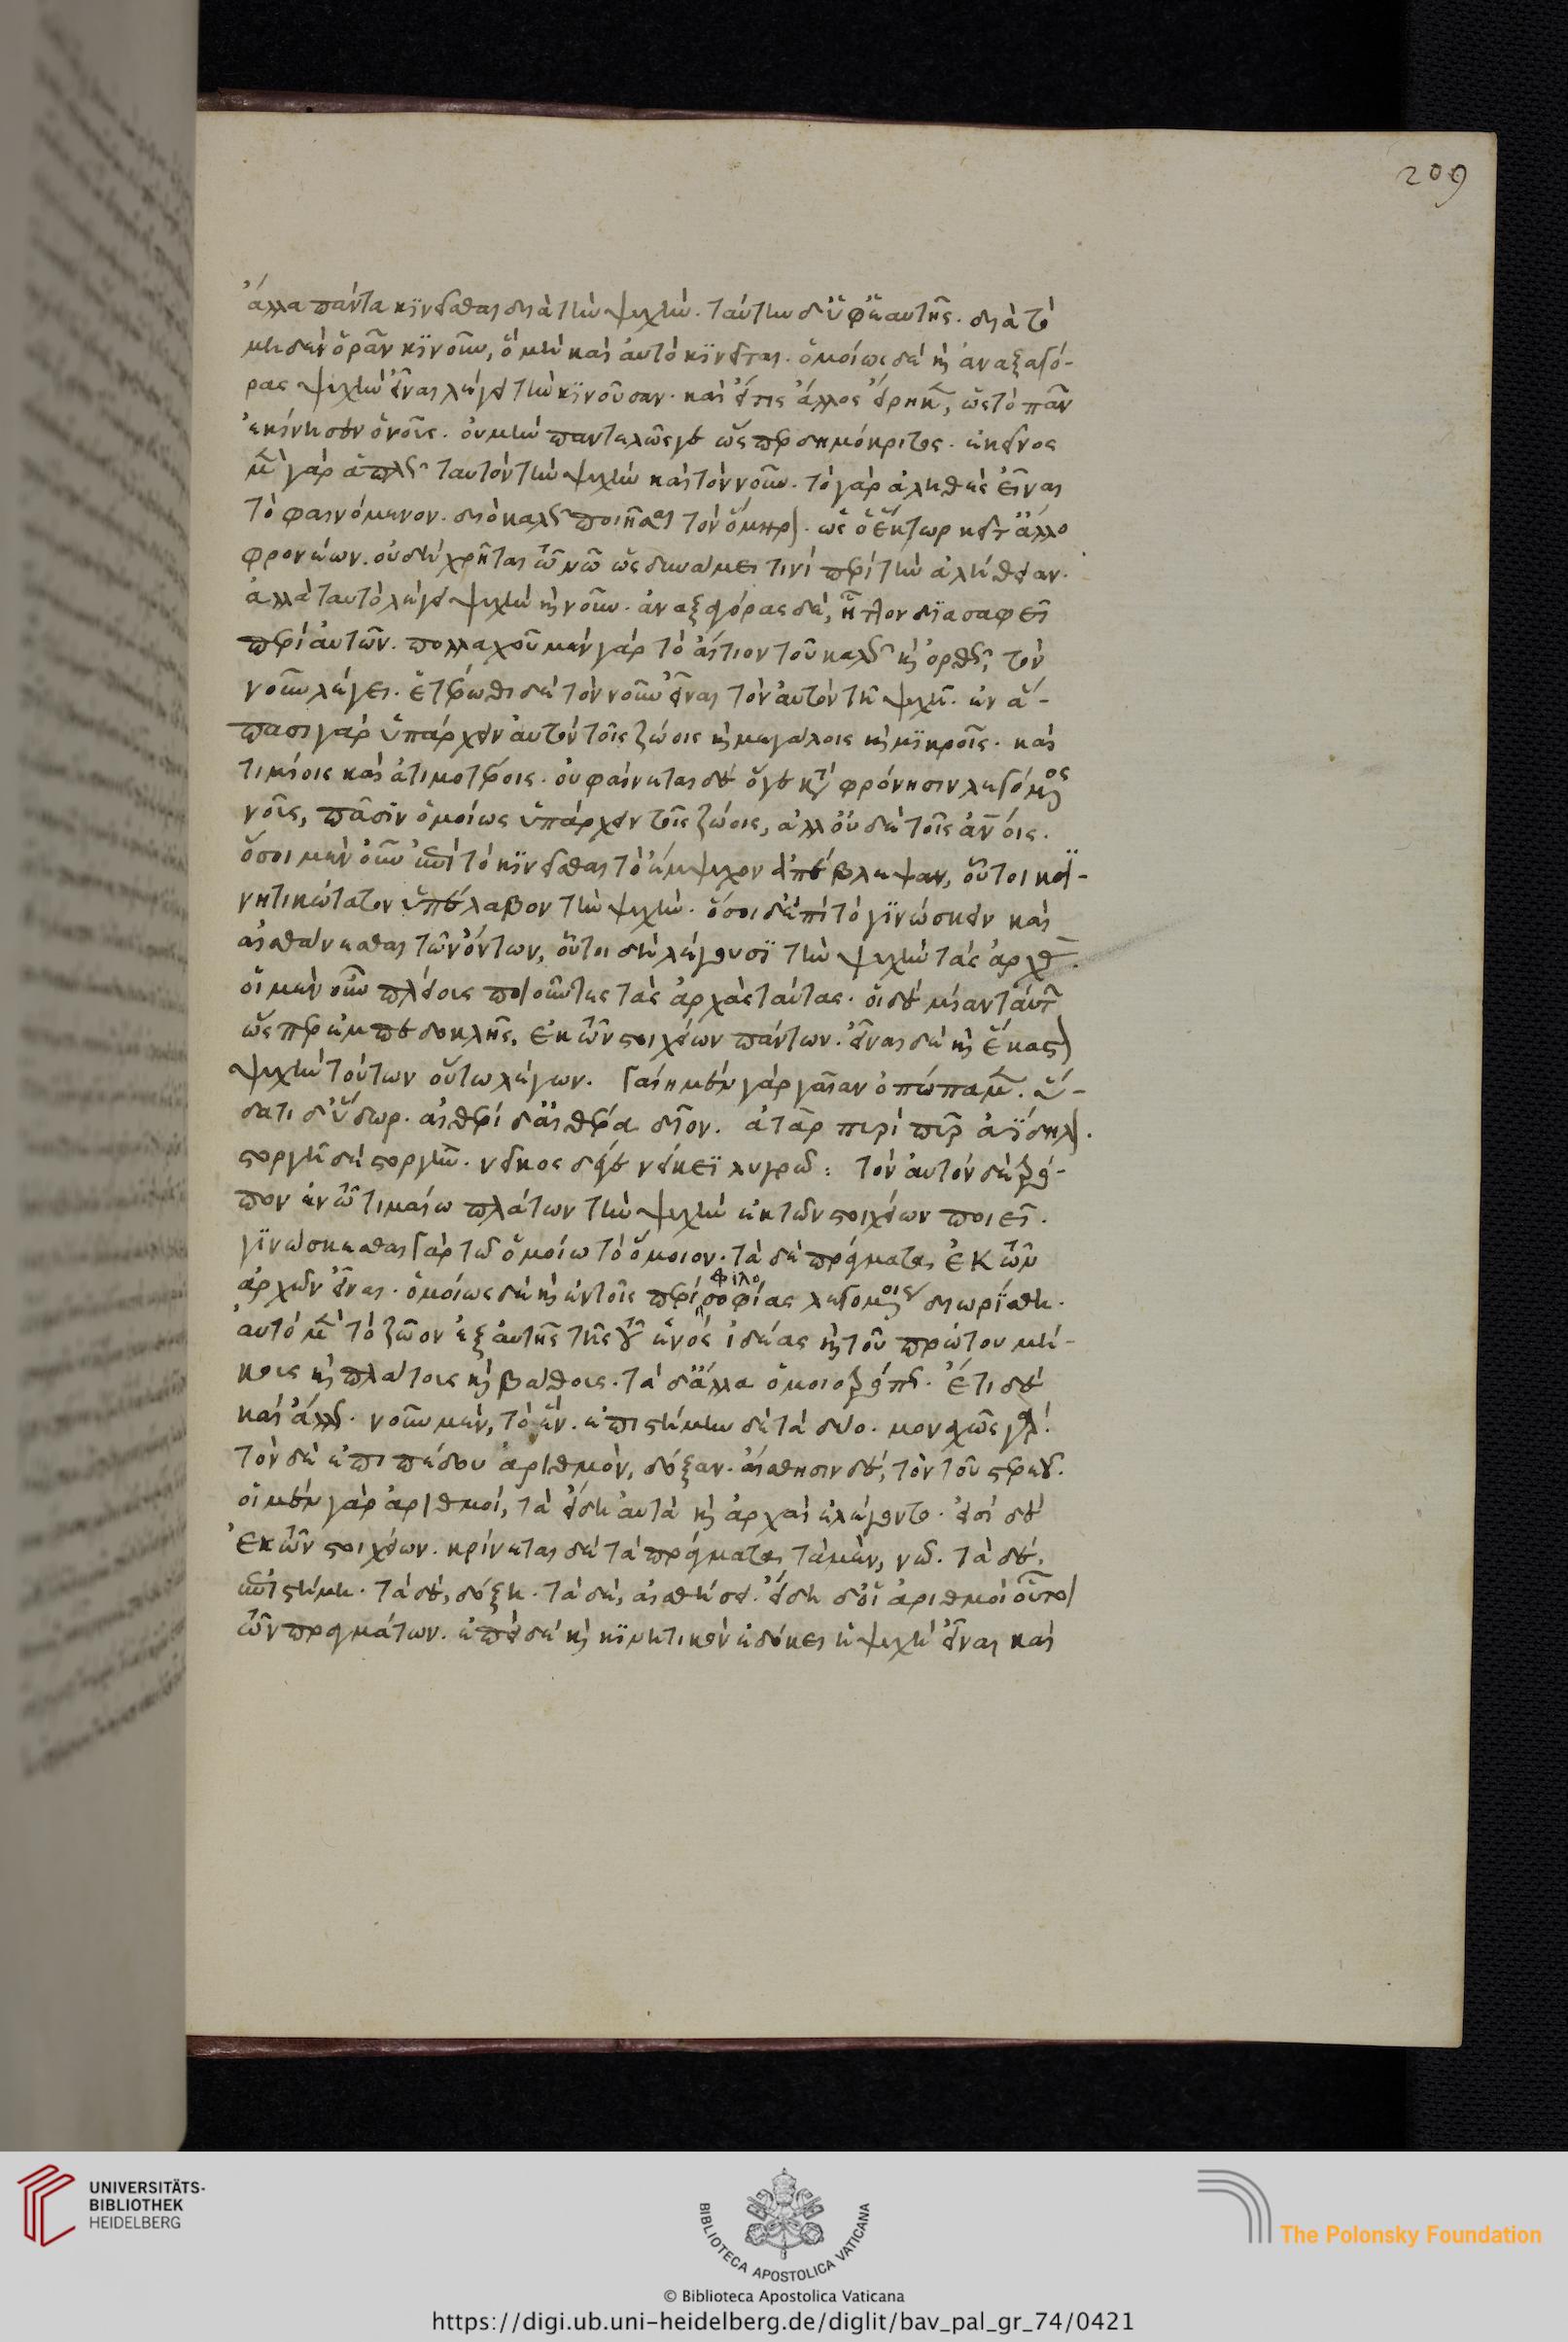 209
ἄλλα πάντα κϊνεῖσθαι διὰ τὴν ψυχήν. ταύτην δ' ὑφ' ἑαυτῆς. διὰ τὸ
μηδὲν ὁρᾶν κϊνοῦν, ὃ μὴ καὶ αὐτὸ κϊνεῖται. ὁμοίως δὲ κὶ ἀναξαγό-
ρας ψυχὴν εἶναι λέγει τὴν κϊνοῦσαν. καὶ εἴτις ἄλλος εἴρηκεν, ὡς τὸ πᾶν
ἐκίνησεν ὁ νοῦς. οὐ μὴν παντελῶς γε ὥσπερ δημόκριτος. ἐκεῖνος
μὲν γὰρ ἁπλῶς ταυτὸν τὴν ψυχὴν καὶ τὸν νοῦν. τὸ γὰρ ἀληθὲς εἶναι
τὸ φαινόμενον. διὸ καλῶς ποιῆσαι τὸν ὅμηρον. ὡς ὁ ἕκτωρ κεῖτ' ἄλλο
φρονέων. οὐ δὴ χρῆται τῷ νῷ ὡς δυνάμει τινὶ περὶ τὴν ἀλήθειαν.
ἀλλὰ ταυτὸ λέγει ψυχὴν κὶ νοῦν. ἀναξαγόρας δὲ, ἧττον διασαφεῖ
περὶ αὐτῶν. πολλαχοῦ μὲν γὰρ τὸ αἴτιον τοῦ καλῶς κὶ ὀρθῶς, τὸν
νοῦν λέγει. ἑτέρωθι δὲ τὸν νοῦν εἶναι τὸν αὐτὸν τῇ ψυχῇ. ἐν ἅ-
πασι γὰρ ὑπάρχειν αὐτὸν τοῖς ζώοις κὶ μεγάλοις κὶ μϊκροῖς. καὶ
τιμίοις καὶ ἀτιμοτέροις. οὐ φαίνεται δὲ ὅγε κατὰ φρόνησιν λεγόμενος
νοῦς, πᾶσιν ὁμοίως ὑπάρχειν τοῖς ζώοις, ἀλλ' οὐδὲ τοῖς ἀνοις.
ὅσοι μὲν οὖν ἐπὶ τὸ κϊνεῖσθαι τὸ ἔμψυχον ἀπέβλεψαν, οὗτοι κϊ-
νητικώτατον ὑπέλαβον τὴν ψυχήν. ὅσοι δ' ἐπὶ τὸ γϊνώσκειν καὶ
αἰσθάνεσθαι τῶν ὄντων, οὗτοι δὴ λέγουσϊ τὴν ψυχὴν τὰς ἀρχάς.
οἱ μὲν οὖν πλείους ποιοῦντες τὰς ἀρχὰς ταύτας. οἱ δὲ μίαν ταύτην
ὥσπερ ἐμπεδοκλῆς, ἐκ τῶν στοιχείων πάντων. εἶναι δὲ κὶ ἕκαστον
ψυχὴν τούτων οὕτω λέγων. γαίη μὲν γὰρ γαῖαν ὀπώπαμεν. ὕ-
δατι δ' ὕδωρ. αἰθέρι δ' αἰθέρα δῖον. ἀτὰρ πυρὶ πῦρ ἀΐδηλον.
στοργῇ δὲ στοργήν. νεῖκος δέ γε νείκεϊ λυγρῷ: τὸν αὐτὸν δὲ τρό-
πον ἐν τῷ τιμαίω πλάτων τὴν ψυχὴν ἐκ τῶν στοιχείων ποιεῖ.
γϊνώσκεσθαι γὰρ τῷ ὁμοίω τὸ ὅμοιον. τὰ δὲ πράγματα ἐκ τῶν
ἀρχῶν εἶναι. ὁμοίως δὲ κὶ ἐν τοῖς περὶ φιλοσοφίας λεγομένοις διωρίσθη.
αὐτὸ μὲν τὸ ζῶον ἐξ αὐτῆς τῆς τοῦ ἑνὸς ἰδέας κὶ τοῦ πρώτου μή-
κους κὶ πλάτους κὶ βάθους. τὰ δ' ἄλλα ὁμοιοτρόπως. ἔτι δὲ
καὶ ἄλλως. νοῦν μὲν, τὸ ἕν. ἐπιστήμην δὲ τὰ δύο. μοναχῶς γάρ.
τὸν δὲ ἐπιπέδου ἀριθμὸν, δόξαν. αἴσθησιν δὲ, τὸν τοῦ στερεοῦ.
οἱ μὲν γὰρ ἀριθμοὶ, τὰ εἴδη αὐτὰ κὶ ἀρχαὶ ἐλέγοντο. εἰσὶ δὲ
ἐκ τῶν στοιχείων. κρίνεται δὲ τὰ πράγματα τὰ μὲν, νῷ. τὰ δὲ,
ἐπιστήμη. τὰ δὲ, δόξη. τὰ δὲ, αἰσθήσει. εἴδη δ' οἱ ἀριθμοὶ οὗτοι
τῶν πραγμάτων. ἐπεὶ δὲ κὶ κϊνητικὸν ἐδόκει ἡ ψυχὴ εἶναι καὶ
UNIVERSITÄTS-
BIBLIOTHEK
HEIDELBERG
BIBLIOTECA APOSTOLICA VATICANA
The Polonsky Foundation
© Biblioteca Apostolica Vaticana
https://digi.ub.uni-heidelberg.de/diglit/bav_pal_gr_74/0421